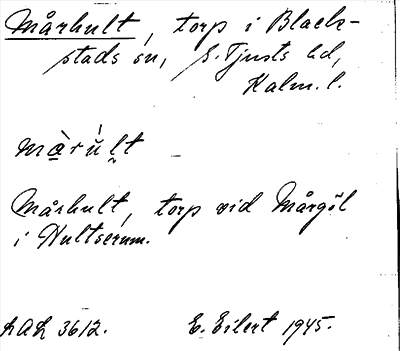 Mårhult, torp i Black-
stads sn, S. Tjusts hd,
Kalm. l.
mà̱rúl̥t
Mårhult, torp vid Mårgöl
i Hultserum.
LAL 3612. E. Eilert 1945.